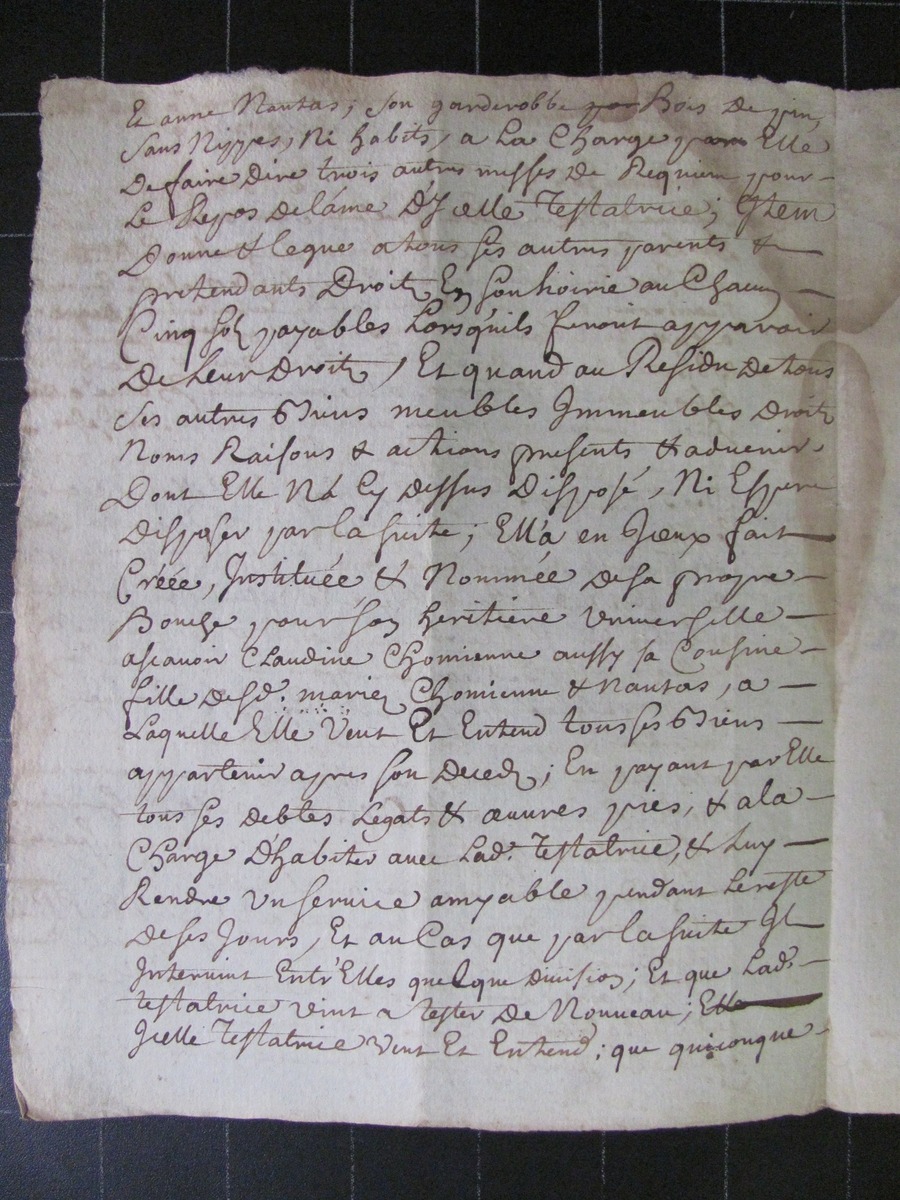 Et anne Nantas, son garderobbe Bois De pin,
sans Nippes, Ni habits, a La Charge par Elle
De faire dire trois autres messes de Requiem pour
Le Repos de láme D'Jcelle Testatrice; Jtem
Donne & legue a tous ses autres parents &
pretendants Droitz En son hoirie au Chacun
Cinq solz payables Lorsquils feront apparoir
De Leur Droitz, Et quand au Residu De tous
ses autres Biens meubles Jmmeubles Droitz
Noms Raisons & actions presents & advenir,
Dont Elle Ná Cy dessus Disposé, Ni Espere
Disposer par la suite; Ell'a en Jceux fait
Créée, Jnstituée & Nommée de sa propre
Bouche pour son heritiere universelle
ascavoir Claudine Chomienne aussy sa Cousine
fille desd. mariez Chomienne & Nantas, a
Laquelle Elle Veut Et Entend tous ses Biens
appartenir apres son Decedz; En payant par Elle
tous ses debtes Legats & œuvres pies, & a la
Charge D'habiter avec Lad. Testatrice, & Luy
Rendre un service amyable pendant Le reste
de ses Jours, Et au Cas que par la suite Jl
Jntervint Entr'Elles quelque division; Et que Lad.
testatrice vint a tester De Nouveau; Elle
Jcelle Testatrice veut Et Entend; que quiconque